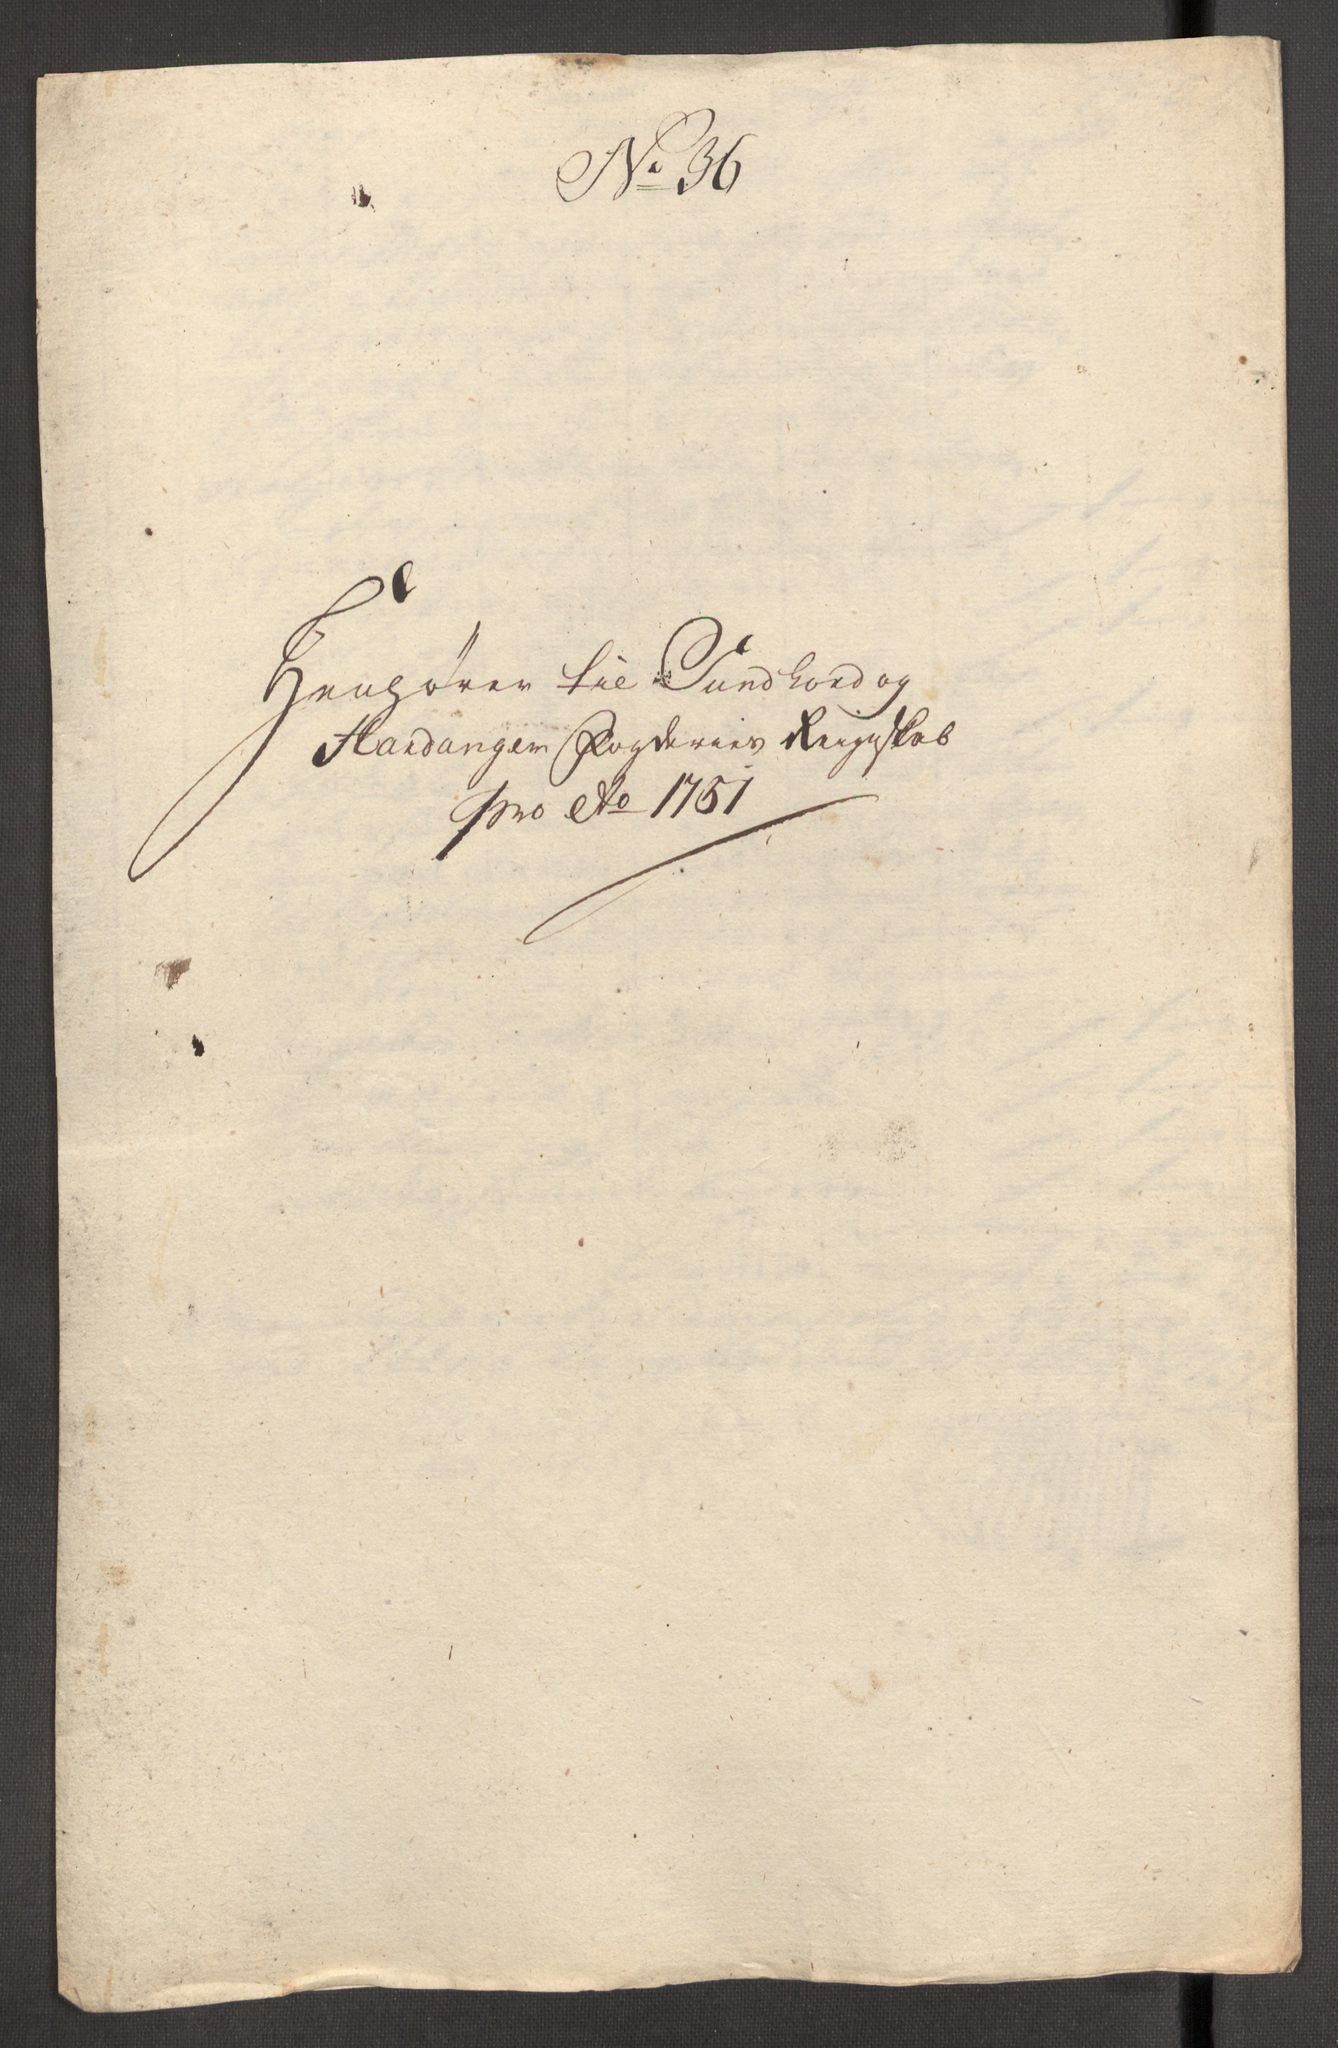 No 36
Henhörer til Sundhord og
Hardanger Fogderies Reignskab
pro Ao 1751